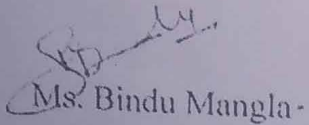 Ms. Bindu Mangla